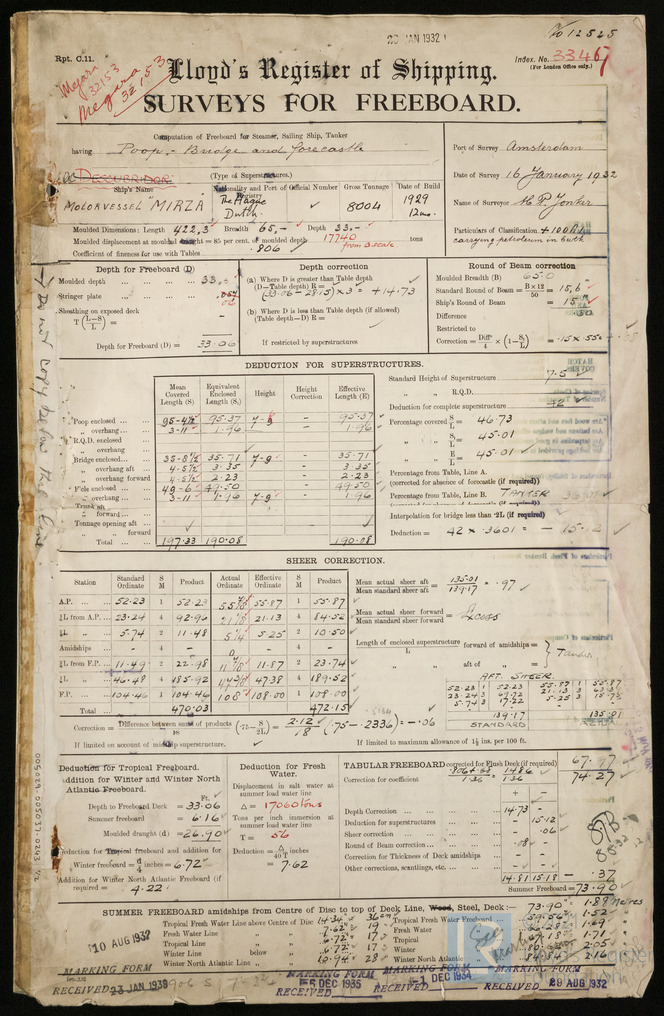 20 JAN 1932
No 12525
Rpt. C.11.
Index. No. 33467
(For London Office only.)
Megara
32153
Megara
32153
Lloyd's Register of Shipping.
SURVEYS FOR FREEBOARD.
Computation of Freeboard for Steamer, Sailing Ship, Tanker
having Poop,- Bridge and forecastle
(Type of Superstructures.)
Port of Survey Amsterdam
Date of Survey 16 January 1932
Name of Surveyor
Particulars of Classification +100A1
carrying petroleum in bulk
Ship's Name Nationality and Port of Registry Official Number Gross Tonnage Date of Build
MOTORVESSEL "MIRZA" The Hague Dutch. 8004 1929 12mo.
Moulded Dimensions: Length 422,3 Breadth 65,- Depth 33,-
Moulded displacement at moulded draught = 85 per cent. of moulded depth 17740 tons
from D. scale
Coefficient of fineness for use with Tables .806
Depth for Freeboard (D)
Moulded depth 33,-
Stringer plate
Sheathing on exposed deck
T (L-S/L) =
Depth for Freeboard (D) = 33.06
Depth correction
(a) Where D is greater than Table depth
(D—Table depth) R =
(33.06-28.15) × 3 = +14.73
(b) Where D is less than Table depth (if allowed)
(Table depth—D) R =
If restricted by superstructures
Round of Beam correction
Moulded Breadth (B) 65.0
Standard Round of Beam = B×12/50 = 15,6
Ship's Round of Beam = 15
Difference
Restricted to
Correction = Diff/4 × (1-S₁/L) =
Do not copy below this line
DEDUCTION FOR SUPERSTRUCTURES.
Mean Covered Length (S) Equivalent Enclosed Length (S₁) Height Height Correction Effective Length (E)
Poop enclosed 95-4½ 95.37 7-9 - 95.37
" overhang 3-11 1.96 - 1.96
R.Q.D. enclosed
" overhang
Bridge enclosed 35-8½ 35.71 7-9 - 35.71
" overhang aft 4-5½ 3.35 - 3.35
" overhang forward 4.5½ 2.23 - 2.23
F'cle enclosed 49-6 49.50 49.50
" overhang 3-11 1.96 7-9 - 1.96
Trunk aft
" forward
Tonnage opening aft
" " forward
Total 197.33 190.08 190.08
Standard Height of Superstructure 7.5
" " R.Q.D.
Deduction for complete superstructure 42
Percentage covered S/L = 46.73
" " S₁/L = 45.01
" " E/L = 45.01
Percentage from Table, Line A.
(corrected for absence of forecastle (if required))
Percentage from Table, Line B. TANKER
Interpolation for bridge less than ·2L (if required)
Deduction = 42 × .3601 = - 15.12
SHEER CORRECTION.
Station Standard Ordinate S M Product Actual Ordinate Effective Ordinate S M Product
A.P. 52.23 1 52.23 55.87 1 55.87
⅙L from A.P. 23.24 4 92.96 21.13 4 84.52
⅓L " 5.74 2 11.48 5¼ 5.25 2 10.50
Amidships - 4 - 0 4
⅓L from F.P. 11.49 2 22.98 11⅞ 11.87 2 23.74
⅙L " 46.48 4 185.92 47⅜ 47.38 4 189.52
F.P. 104.46 1 104.46 108 108.00 1 108.00
Total 470.03 472.15
Mean actual sheer aft / Mean standard sheer aft = 135.01/139.17 = .97
Mean actual sheer forward / Mean standard sheer forward = Excess
Length of enclosed superstructure / L forward of amidships =
" " aft of " =
Tanker
AFT SHEER
52.23 1 52.23 55.87 1 55.87
23.24 3 69.72 21.13 3
5.74 3 17.22 5.25 3 15.75
139.17 135.01
STANDARD
Correction = Difference between sums of products/18 (·75 - S/2L) = 2.12/18 (.75-.2336) = -.06
If limited on account of midship superstructure.
If limited to maximum allowance of 1½ ins. per 100 ft.
Deduction for Tropical Freeboard.
Addition for Winter and Winter North Atlantic Freeboard.
Ft.
Depth to Freeboard Deck = 33.06
Summer freeboard = 6.16
Moulded draught (d) = 26.90
Deduction for Tropical freeboard and addition for
Winter freeboard = d/4 inches = 6.72
Addition for Winter North Atlantic Freeboard (if required) = 4.22
Deduction for Fresh Water.
Displacement in salt water at summer load water line
Δ = 17060 tons
Tons per inch immersion at summer load water line
T = 56
Deduction = Δ/40T inches
= 7.62
TABULAR FREEBOARD corrected for Flush Deck (if required) 67.77
Correction for coefficient .806+.68/1.36 = 1.486/1.36 74.27
+ -
Depth Correction 14.73 -
Deduction for superstructures - 15.12
Sheer correction - .06
Round of Beam correction .08 -
Correction for Thickness of Deck amidships - -
Other corrections, scantlings, etc. - -
14.81 15.18 - .37
Summer Freeboard = 73.90
SUMMER FREEBOARD amidships from Centre of Disc to top of Deck Line, Wood, Steel, Deck:— 73.90 1.88 metres
Tropical Fresh Water Line above Centre of Disc 14.34
Fresh Water Line " " 7.62 19
Tropical Line " " 6.72 17
Winter Line below " 6.72 17
Winter North Atlantic Line " " 10.94 28
Tropical Fresh Water Freeboard 59.56 1.52
Fresh Water " 66.28 1.69
Tropical " 67.18 1.71
Winter " 2.05
Winter North Atlantic " 84.84 2.16
10 AUG 1932
MARKING FORM
RECEIVED 23 JAN 1939
MARKING FORM
RECEIVED 5 DEC 1935
MARKING FORM
RECEIVED 1 DEC 1934
MARKING FORM
RECEIVED 29 AUG 1932
005029-005037-0243 1/2